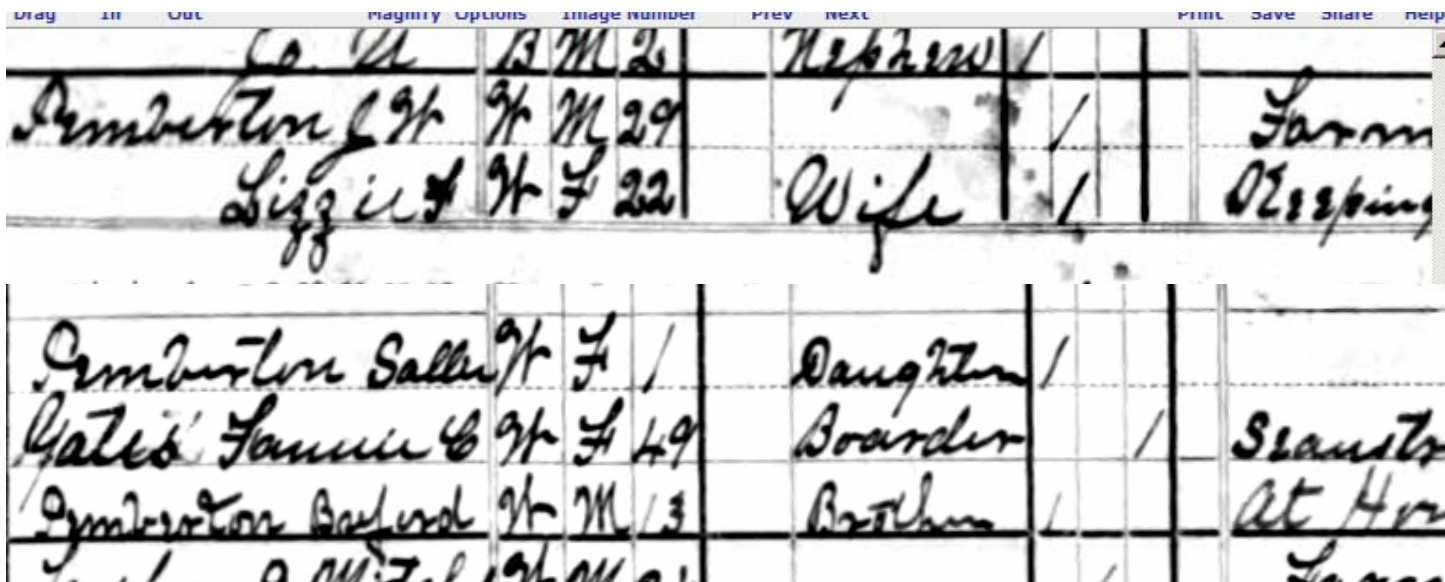 Drag In Out Magnify Options Image Number Prev Next Print Save Share Help
B M 2 Nephew /
Pemberton J W W M 29 / Farm
Lizzie F W F 22 Wife / Keeping
Pemberton Sallie W F 1 Daughter /
Gates Fannie C W F 49 Boarder / Seamstr
Pemberton Buford W M 13 Brother / At Hom
W M